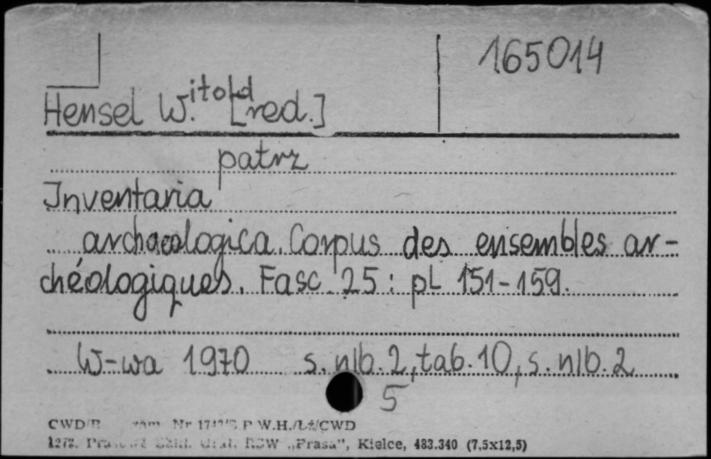 165014
Hensel W.itold [red.]
patrz
Inventaria
archaeologica. Corpus des ensembles ar-
chéologiques. Fasc. 25: pL 151-159.
W-wa 1970 s. nlb. 2, tab. 10, s. nlb. 2
5
CWD Nr P.W.H./Łż/CWD
Graf. RSW „Prasa", Kielce, 483.340 (7,5x12,5)